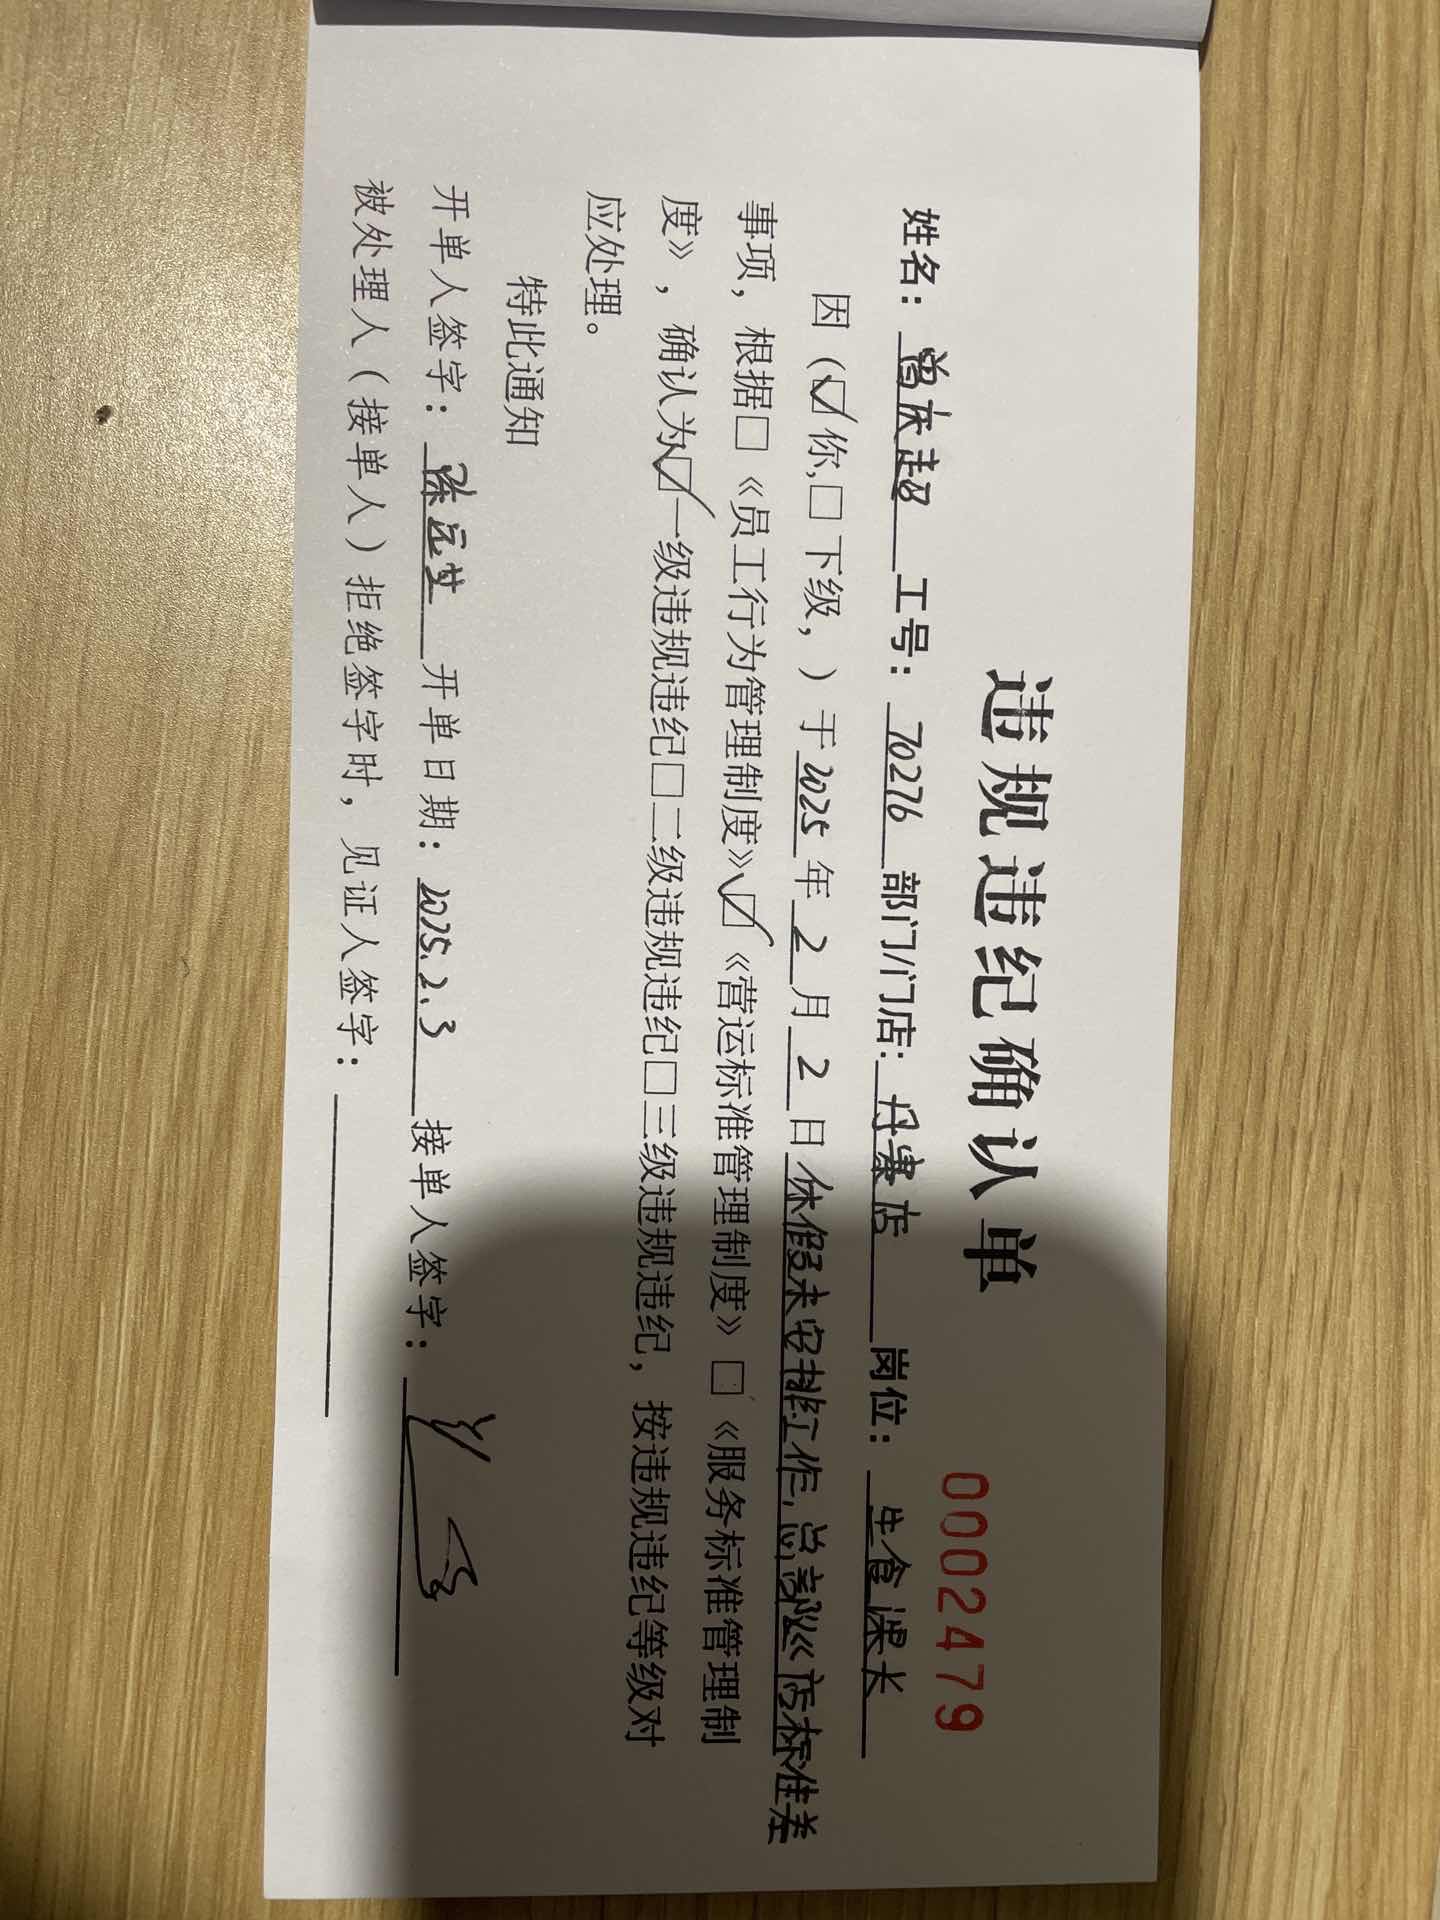 违规违纪确认单
0002479
姓名：曾庆超 工号：70276 部门/门店：丹寨店 岗位：生食课长
因（☑你，□下级，）于2025年2月2日休假未安排工作，总部巡店标准差
事项，根据□《员工行为管理制度》☑《营运标准管理制度》□《服务标准管理制
度》，确认为☑一级违规违纪□二级违规违纪□三级违规违纪，按违规违纪等级对
应处理。
特此通知
开单人签字：陈远 开单日期：2025.2.3 接单人签字：
被处理人（接单人）拒绝签字时，见证人签字：